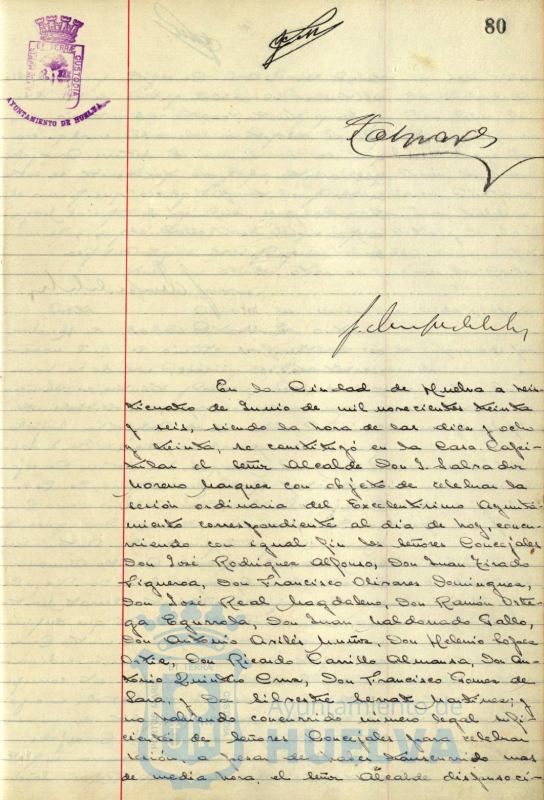 80
AYUNTAMIENTO DE HUELVA
En la Ciudad de Huelva a vein-
ticuatro de Junio de mil novecientos treinta
y seis, siendo la hora de las diez y ocho
y treinta, se constituyó en la Casa Capi-
tular el señor Alcalde Don J. Salvador
Moreno Marquez con objeto de celebrar la
sesión ordinaria del Excelentísimo Ayunta-
miento correspondiente al dia de hoy, concu-
rriendo con igual fin los señores Concejales
Don José Rodriguez Alfonso, Don Juan Tirado
Figueroa, Don Francisco Olivares Dominguez,
Don José Real Magdaleno, Don Ramón Orte-
ga Don Juan Maldonado Gallo,
Don Antonio Avilés Muñiz, Don Helenio López
Don Ricardo Carrillo Almansa, Don An-
tonio Quintero Cruz, Don Francisco Gomez de
Lara, y Don Silvestre Martinez; y
no habiendo concurrido número legal sufi-
ciente de señores Concejales para celebrar
sesión, a pesar de haber transcurrido mas
de media hora, el señor Alcalde
Ayuntamiento de
HUELVA